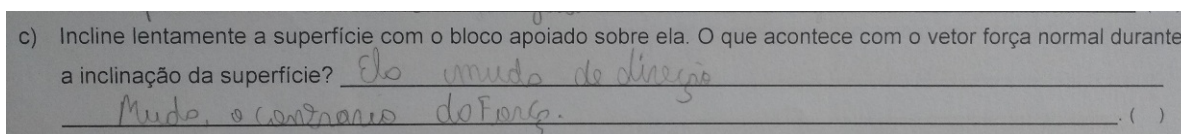 c) Incline lentamente a superfície com o bloco apoiado sobre ela. O que acontece com o vetor força normal durante
a inclinação da superfície? Ela muda de direção
Muda, o contrario da Força. . ( )